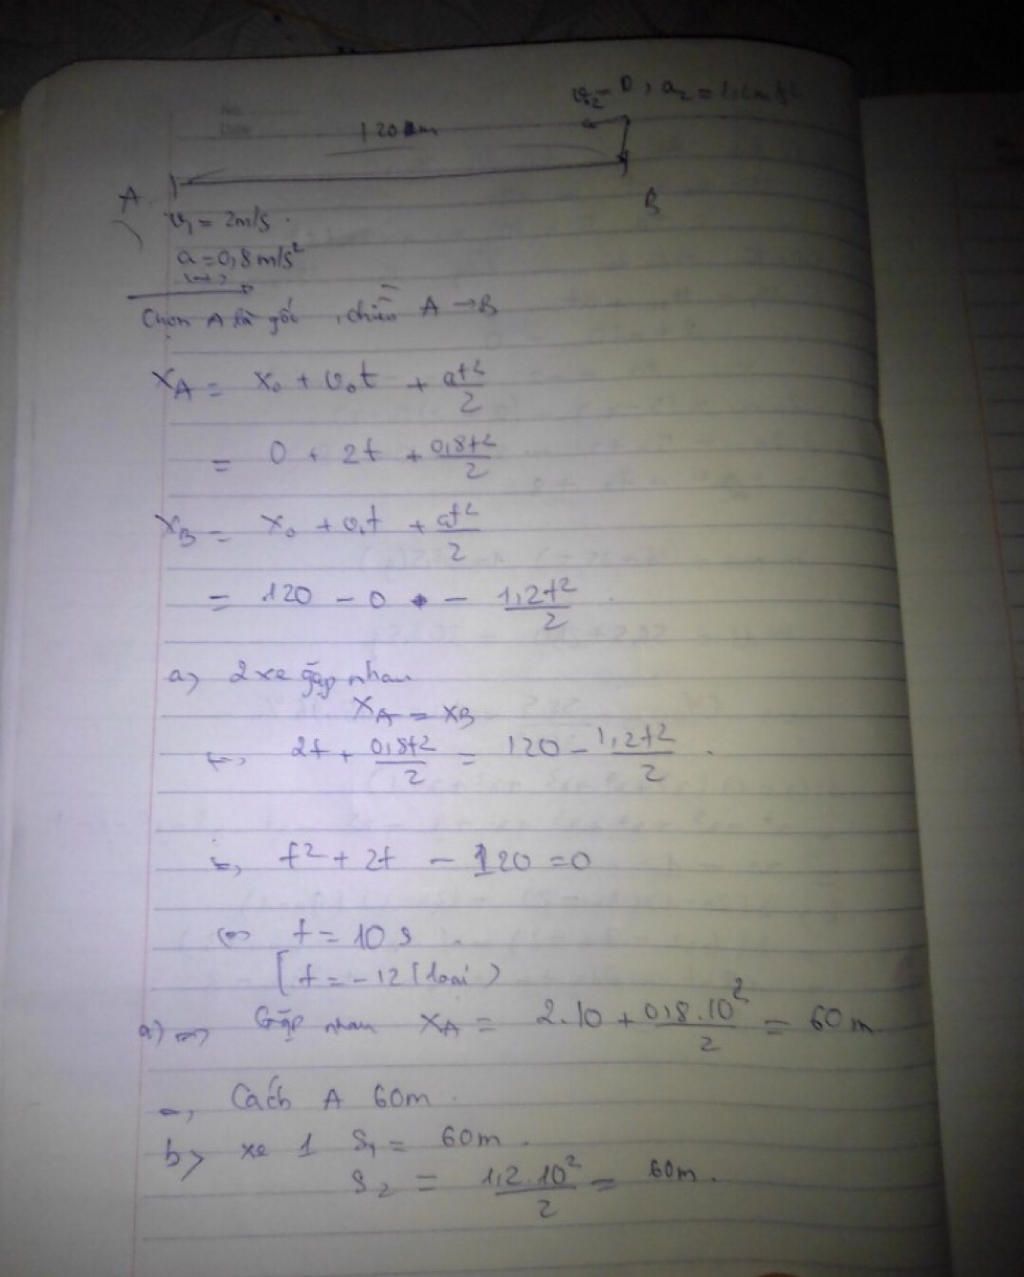 v₂ = 0, a₂ = 1,2m/s²
120 m
A
B
v₁ = 2m/s.
a = 0,8 m/s²
Chọn A là gốc, chiều A → B
x_A = x₀ + v₀t + at²/2
= 0 + 2t + 0,8t²/2
x_B = x₀ + v₀t + at²/2
= 120 - 0 - 1,2t²/2.
a) 2 xe gặp nhau
x_A = x_B
⇔ 2t + 0,8t²/2 = 120 - 1,2t²/2.
⇔ t² + 2t - 120 = 0
⇔ t = 10 s
[ t = -12 (loại)
a) ⇒ Gặp nhau x_A = 2.10 + 0,8.10²/2 = 60 m.
⇒ Cách A 60m.
b) xe 1 S₁ = 60m.
S₂ = 1,2.10²/2 = 60m.